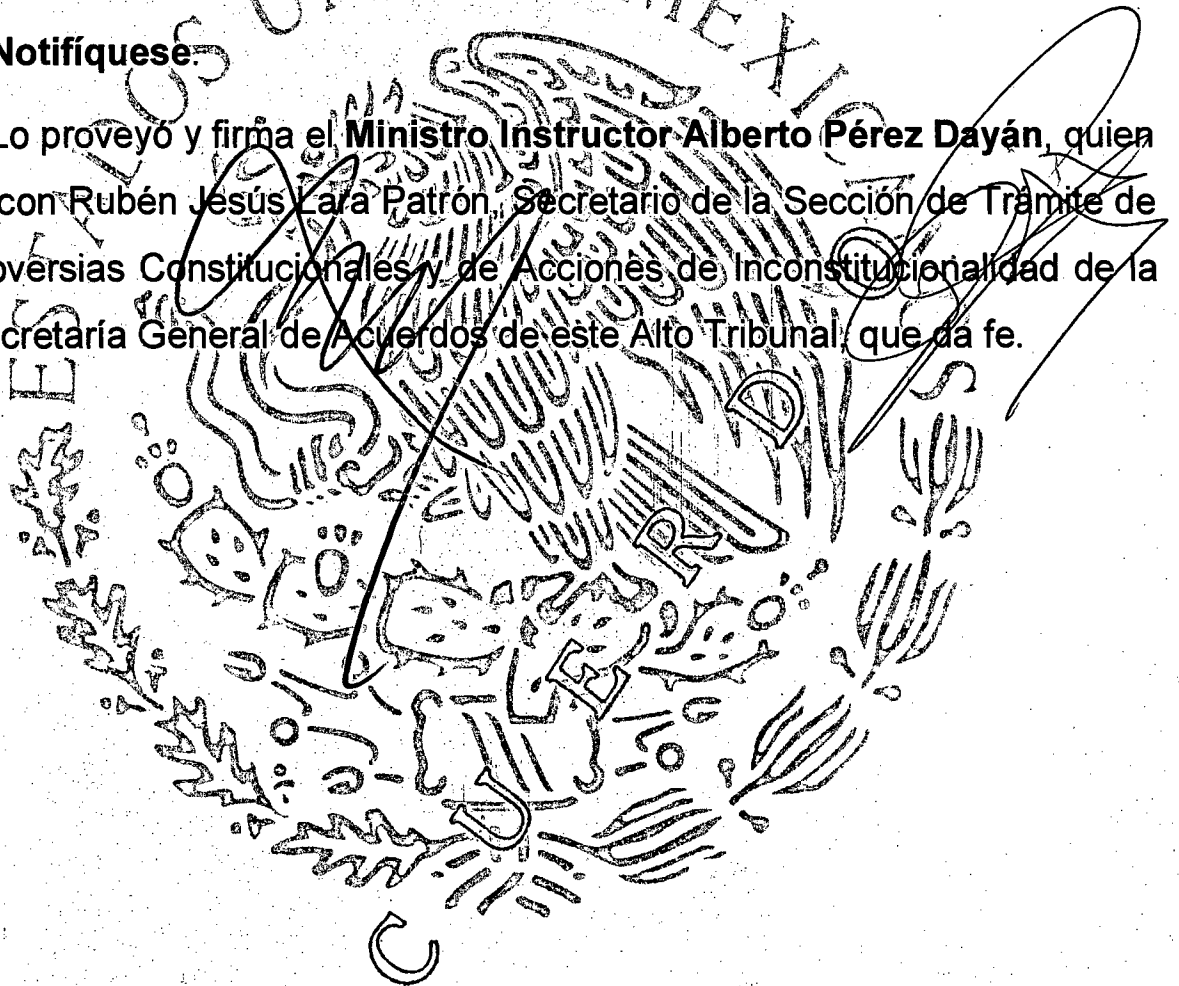 Notifíquese.
Lo proveyó y firma el Ministro Instructor Alberto Pérez Dayán, quien
con Rubén Jesús Lara Patrón, Secretario de la Sección de Trámite de
oversias Constitucionales y de Acciones de Inconstitucionalidad de la
cretaría General de Acuerdos de este Alto Tribunal, que da fe.
ESTADOS U MEXICANOS
C U E R D O